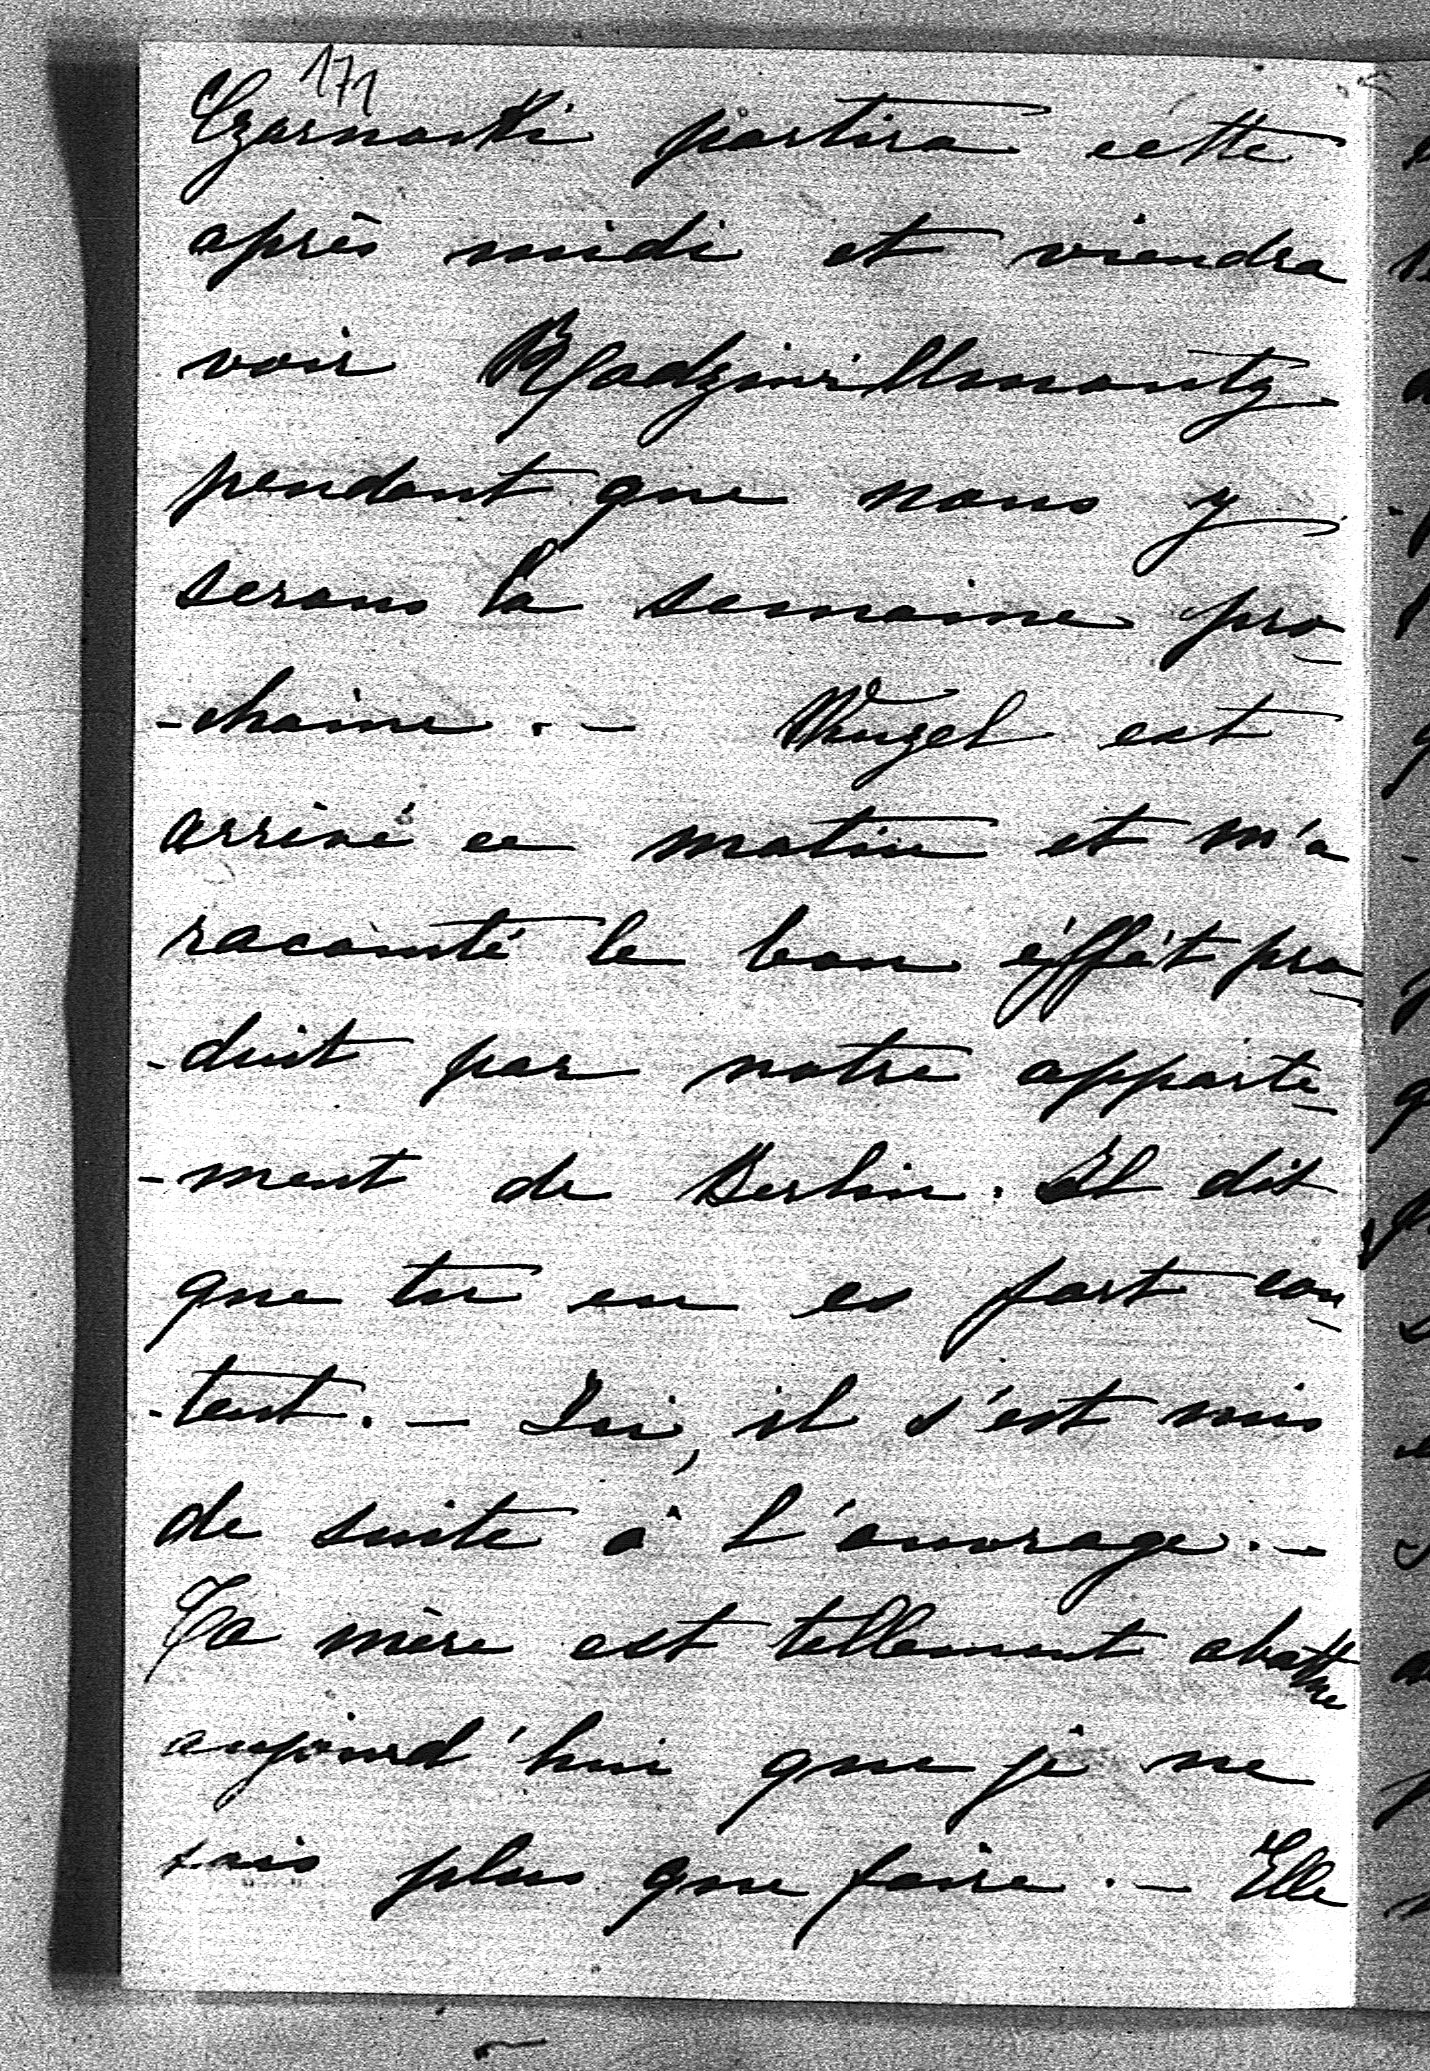 171
Czarnowski partira cette
après midi et viendra
voir Radziwillmonty
pendant que nous y
serons la semaine pro
-chaine. -
est
arrivé ce matin et m'a
racomté le bon éffét pro
-duit par notre apparte
-ment de Berlin. Il dit
que tu en es fort con
-tent. - Ici, il s'est mis
de suite à l'ouvrage. -
Ta mère est tellement abattue
aujourd'hui que je ne
sais plus que faire. - Elle